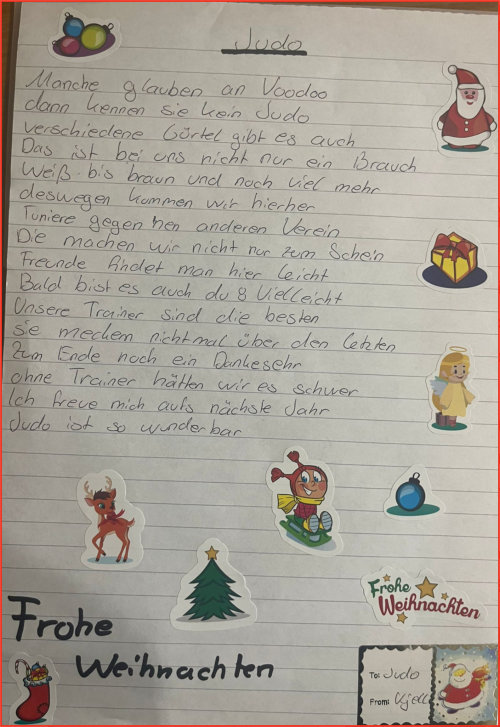 Judo
Manche glauben an Voodoo
dann kennen sie kein Judo
verschiedene Gürtel gibt es auch
Das ist bei uns nicht nur ein Brauch
Weiß bis braun und noch viel mehr
deswegen kommen wir hierher
Tuniere gegen nen anderen Verein
Die machen wir nicht nur zum Schein
Freunde findet man hier leicht
Bald bist es auch du 8 Vielleicht
Unsere Trainer sind die besten
sie meckern nichtmal über den letzten
Zum Ende noch ein Dankesehr
ohne Trainer hätten wir es schwer
Ich freue mich aufs nächste Jahr
Judo ist so wunderbar
Frohe
Weihnachten
Frohe
Weihnachten
To: Judo
From: Kjell